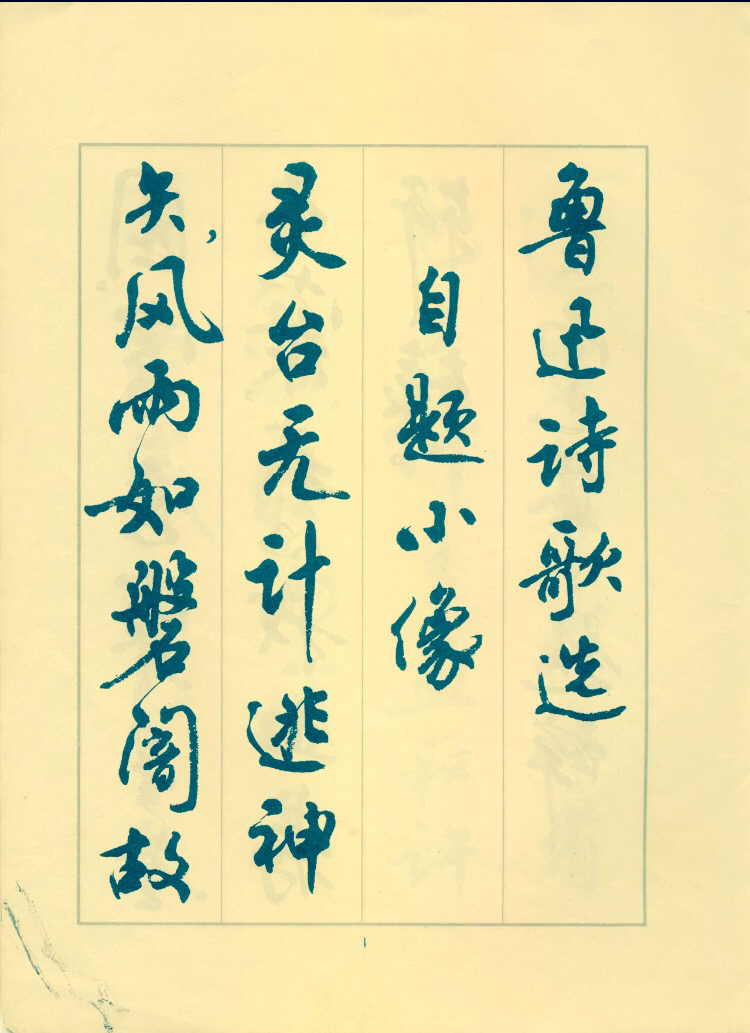 鲁迅诗歌选
自题小像
灵台无计逃神
矢，风雨如磐闇故
1